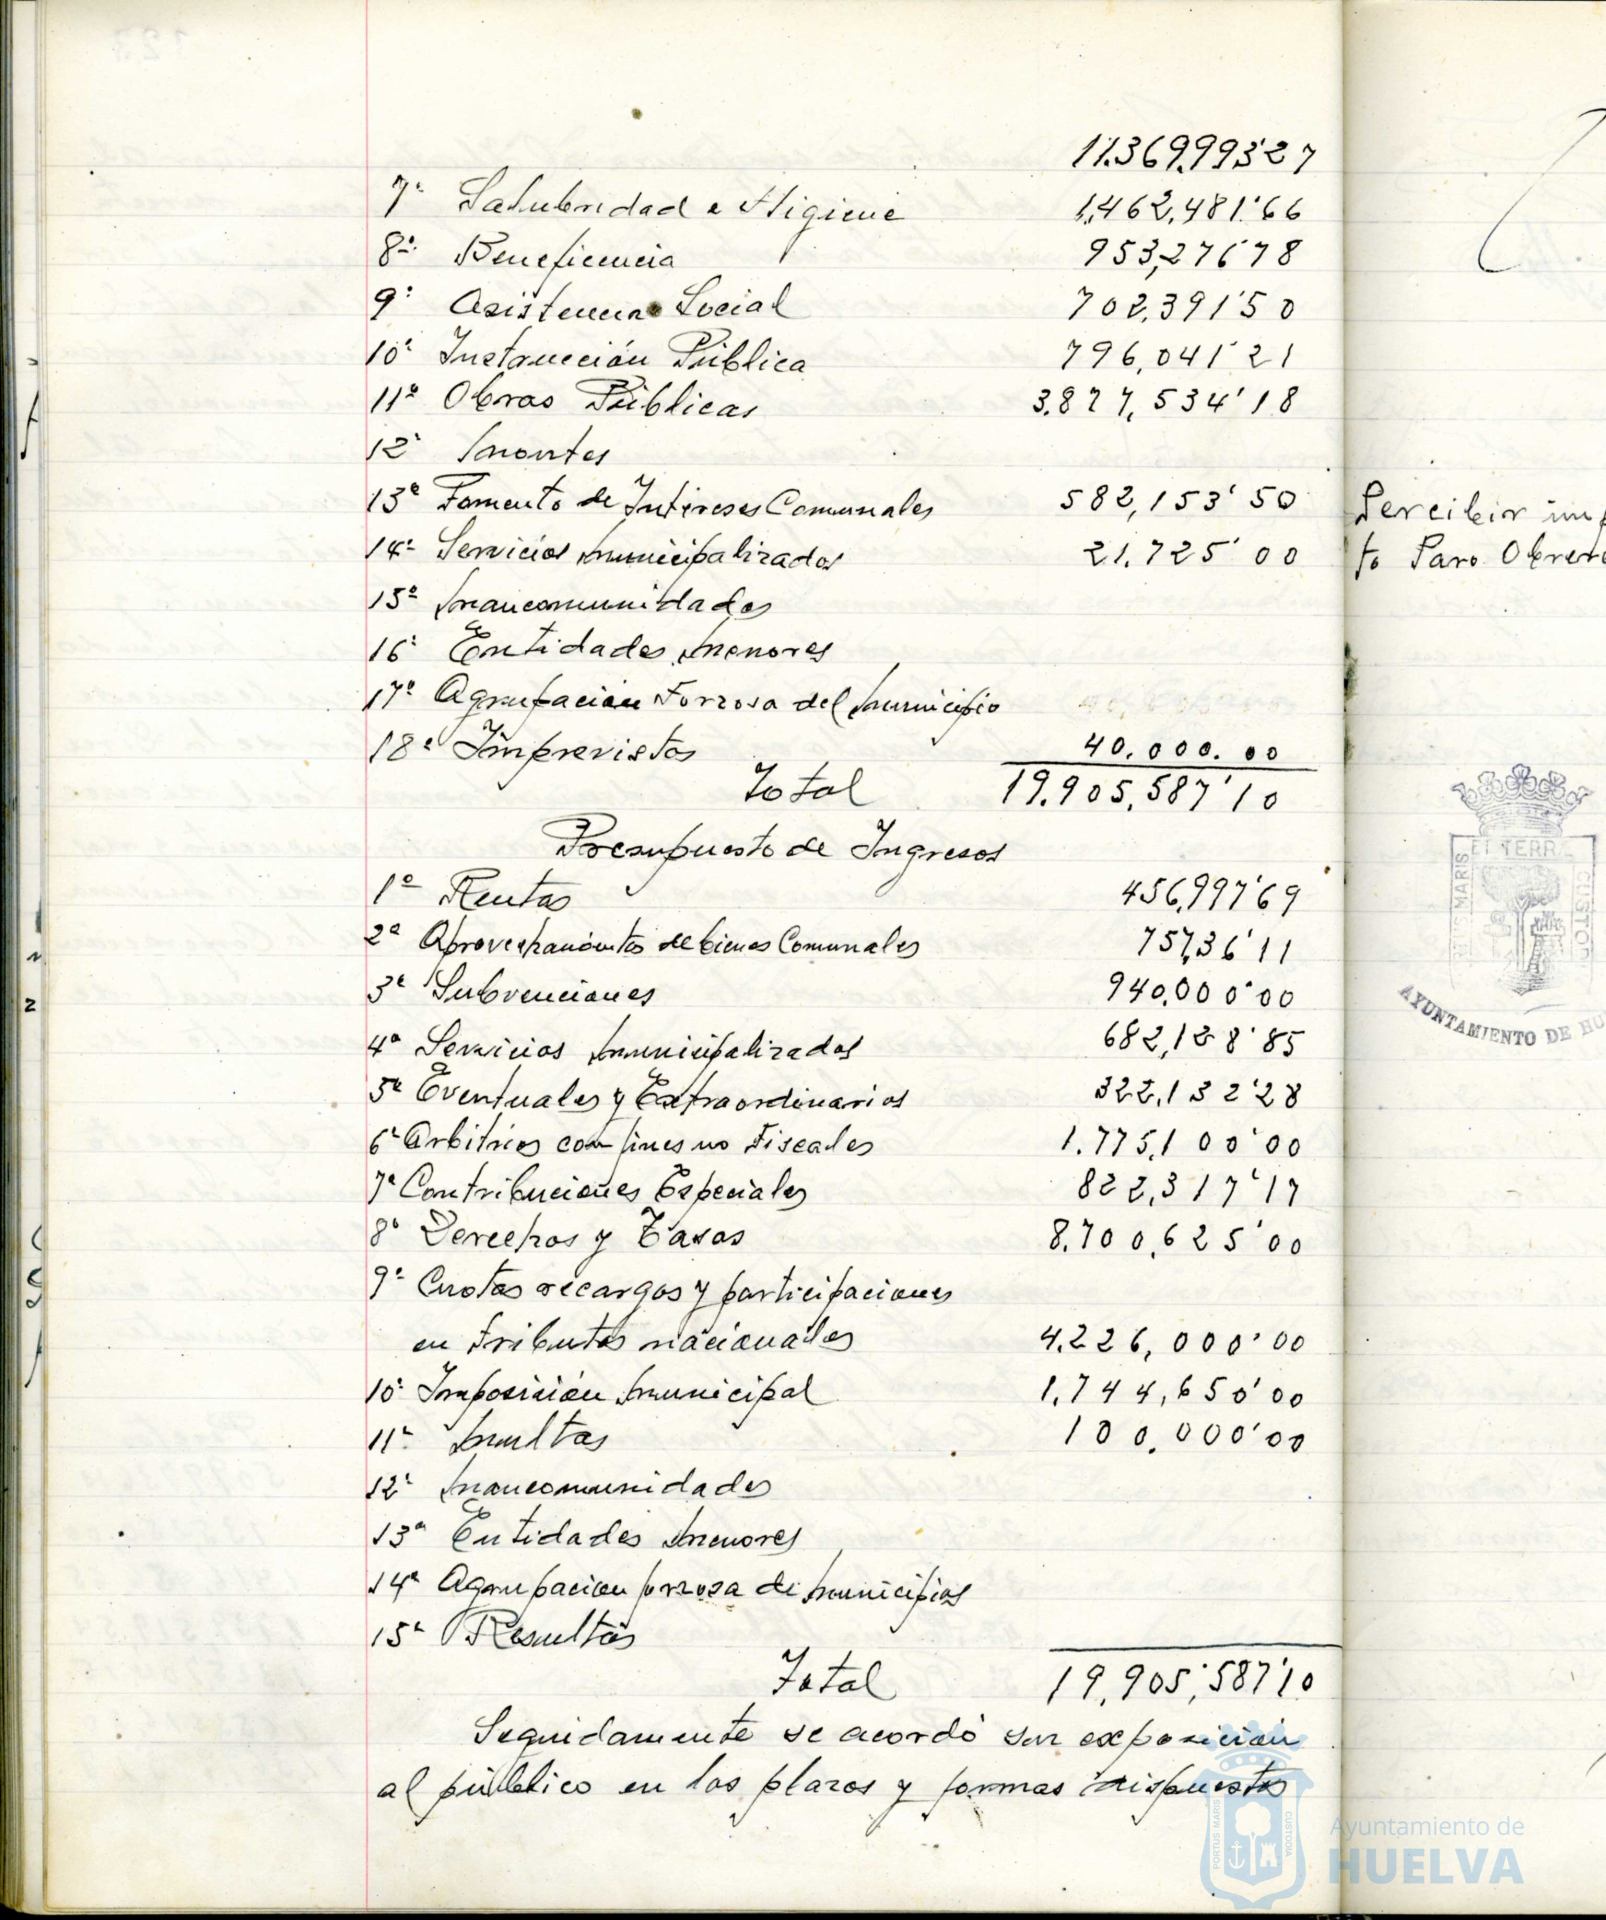 11.369.993'27
7º Salubridad e Higiene 1,462,481'66
8º Beneficencia 953,276'78
9º Asistencia Social 702,391'50
10º Instrucción Pública 796,041'21
11º Obras Públicas 3.877,534'18
12º Montes
13º Fomento de Intereses Comunales 582,153'50
14º Servicios Municipalizados 21.725'00
15º Mancomunidades
16º Entidades Menores
17º Agrupación Forzosa del Municipio
18º Imprevistos 40.000.00
Total 19.905,587'10
Presupuesto de Ingresos
1º Rentas 456,997'69
2º Aprovechamientos de bienes Comunales 757,36'11
3º Subvenciones 940,000'00
4º Servicios Municipalizados 682,128'85
5º Eventuales y Extraordinarios 322,132'28
6º Arbitrios con fines no Fiscales 1.775,100'00
7º Contribuciones Especiales 822,317'17
8º Derechos y Tasas 8.700,625'00
9º Cuotas recargos y participaciones
en tributos nacionales 4.226,000'00
10º Imposición Municipal 1.744,650'00
11º Multas 100,000'00
12º Mancomunidades
13º Entidades Menores
14º Agrupacion forzosa de Municipios
15º Resultas
Total 19,905,587'10
Seguidamente se acordó su exposición
al público en los plazos y formas dispuestos
Percibir imp
to Paro Obrero
ET TERR
AYUNTAMIENTO DE HU
PORTUS MARIS
CUSTODIA
Ayuntamiento de
HUELVA